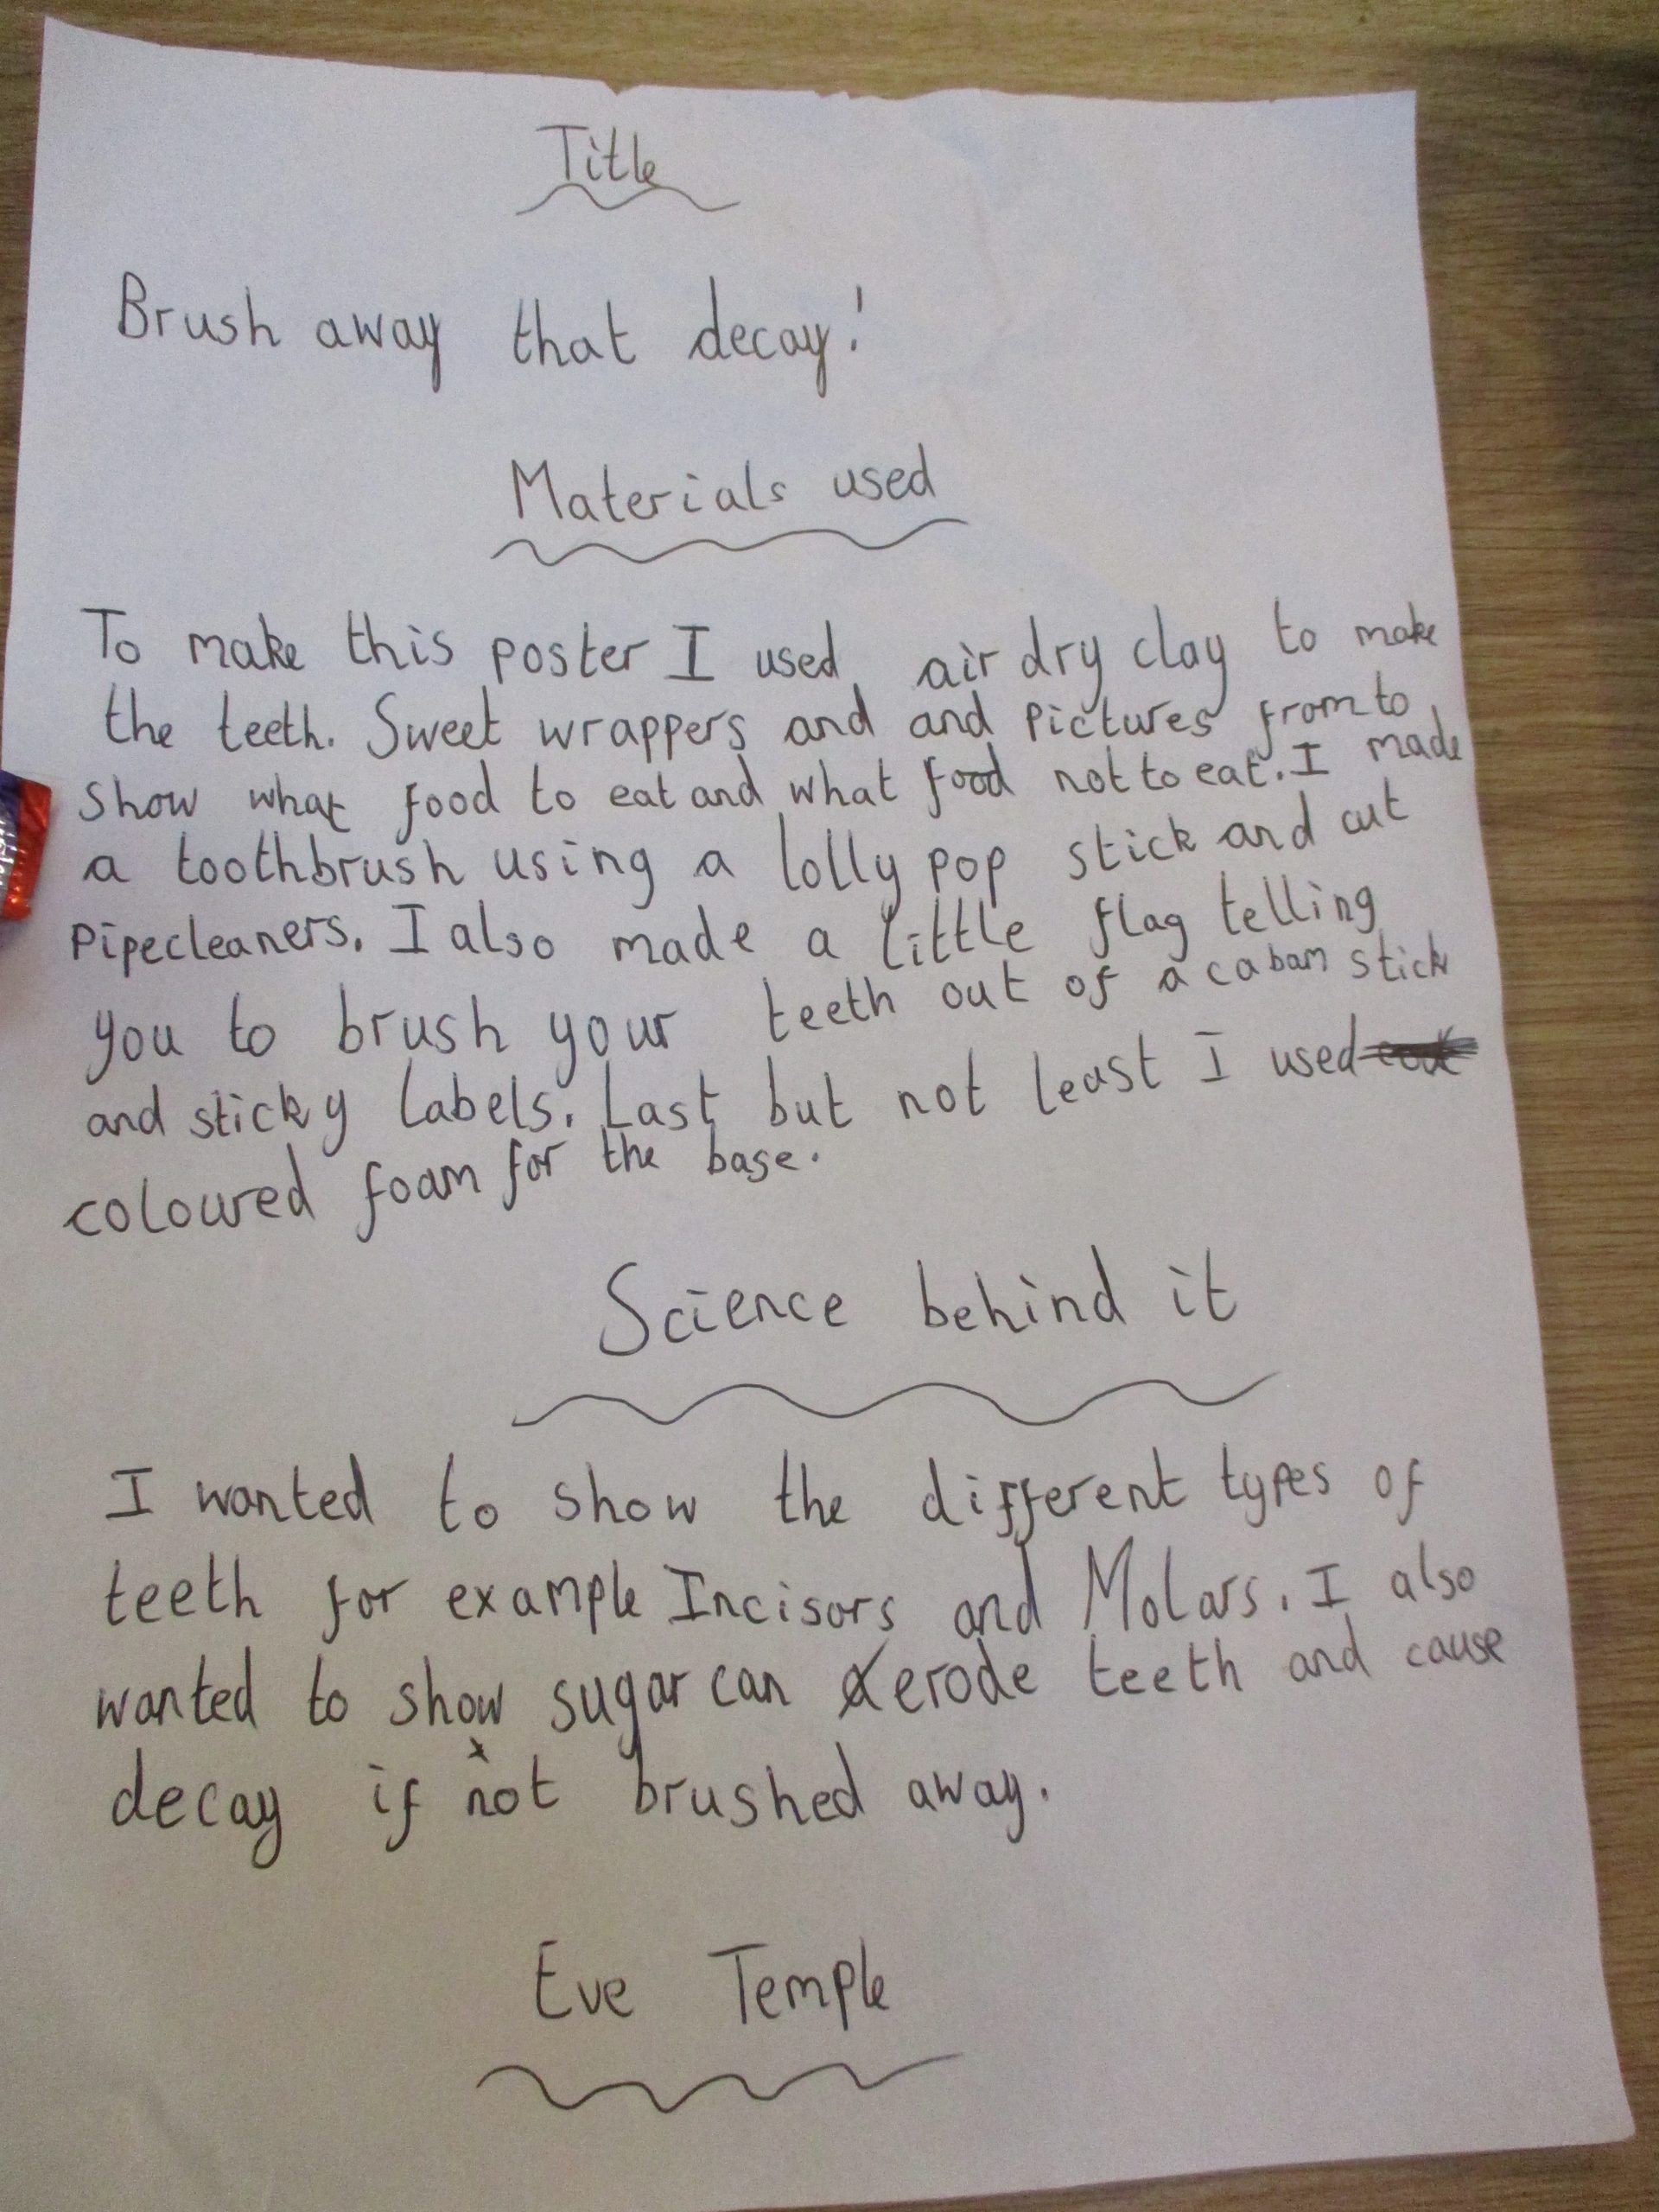 Title
Brush away that decay!
Materials used
To make this poster I used air dry clay to make
the teeth. Sweet wrappers and and pictures from to
show what food to eat and what food not to eat. I made
a toothbrush using a lolly pop stick and cut
pipecleaners. I also made a little flag telling
you to brush your teeth out of a caban stick
and sticky labels. Last but not least I used
coloured foam for the base.
Science behind it
I wanted to show the different types of
teeth for example Incisors and Molars. I also
wanted to show sugar can erode teeth and cause
decay if not brushed away.
Eve Temple